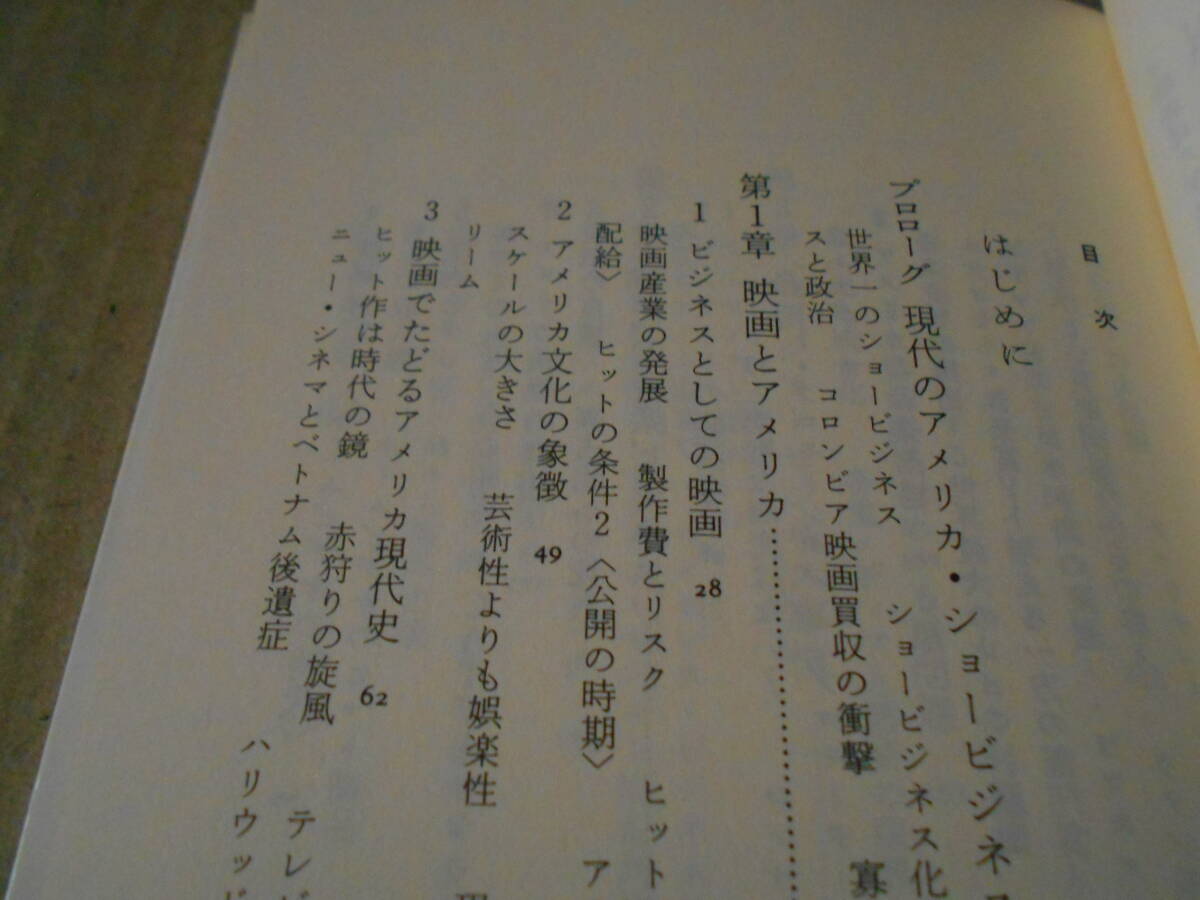 目次
はじめに
プロローグ 現代のアメリカ・ショービジネス
世界一のショービジネス ショービジネス化
スと政治 コロンビア映画買収の衝撃 寡
第1章 映画とアメリカ
1 ビジネスとしての映画 28
映画産業の発展 製作費とリスク ヒット
配給〉 ヒットの条件2〈公開の時期〉 ア
2 アメリカ文化の象徴 49
スケールの大きさ 芸術性よりも娯楽性
リーム
3 映画でたどるアメリカ現代史 62
ヒット作は時代の鏡 赤狩りの旋風 テレビ
ニュー・シネマとベトナム後遺症 ハリウッド